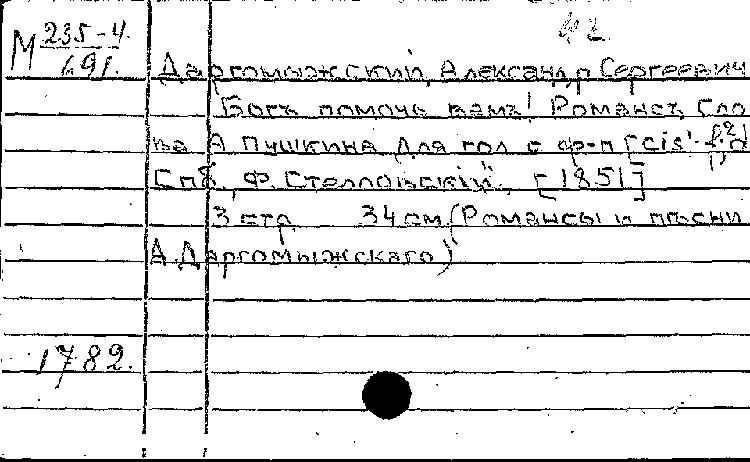 42
М 235-4
691.
Даргомыжский, Александр Сергеевич
Богъ помочь вамъ! Романсъ, сло
ва А Пушкина для гол с ф-п [cis'-
Спб, Ф. Стелловскiй, [1851]
3 стр 34 см (Романсы и пѣсни
А. Даргомыжскаго)
1782.